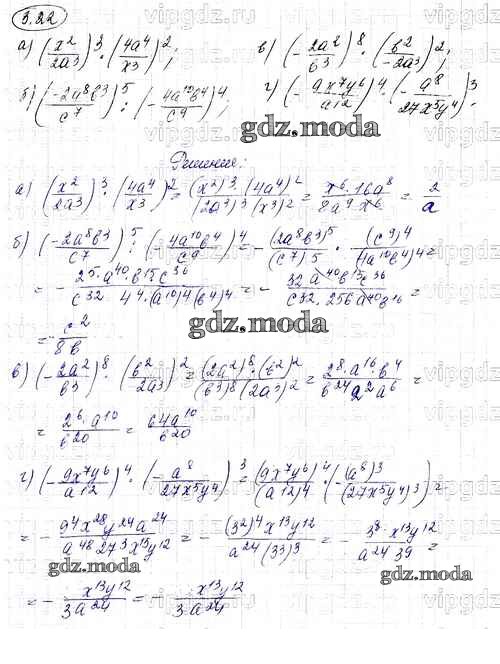 5.22
а) (x²/2a³)³ · (4a⁴/x³)²;   в) (-2a²/b³)⁸ · (b²/-2a³)²;
б) (-2a⁸b³/c⁷)⁵ : (-4a¹⁰b⁴/c⁹)⁴;   г) (-9x⁷y⁶/a¹²)⁴ · (-a⁸/27x⁵y⁴)³
gdz.moda
Решение:
а) (x²/2a³)³ · (4a⁴/x³)² = (x²)³·(4a⁴)²/(2a³)³(x³)² = x⁶·16a⁸/8a⁹x⁶ = 2/a
б) (-2a⁸b³/c⁷)⁵ : (-4a¹⁰b⁴/c⁹)⁴ = -(2a⁸b³)⁵/(c⁷)⁵ · (c⁹)⁴/(4a¹⁰b⁴)⁴ =
= -2⁵·a⁴⁰b¹⁵c³⁶/c³² 4⁴·(a¹⁰)⁴(b⁴)⁴ = -32a⁴⁰b¹⁵c³⁶/c³²·256a⁴⁰b¹⁶ =
= -c²/8b
gdz.moda
в) (-2a²/b³)⁸ · (b²/2a³)² = (2a²)⁸·(b²)²/(b³)⁸(2a³)² = 2⁸·a¹⁶·b⁴/b²⁴2²a⁶ =
= 2⁶·a¹⁰/b²⁰ = 64a¹⁰/b²⁰
г) (-9x⁷y⁶/a¹²)⁴ · (-a⁸/27x⁵y⁴)³ = (9x⁷y⁶)⁴/(a¹²)⁴ · (a⁸)³/(27x⁵y⁴)³ =
= -9⁴x²⁸y²⁴a²⁴/a⁴⁸27³x¹⁵y¹² = -(3²)⁴x¹³y¹²/a²⁴(3³)³ = -3⁸·x¹³y¹²/a²⁴3⁹ =
gdz.moda
= -x¹³y¹²/3a²⁴ = -x¹³y¹²/3a²⁴
gdz.moda